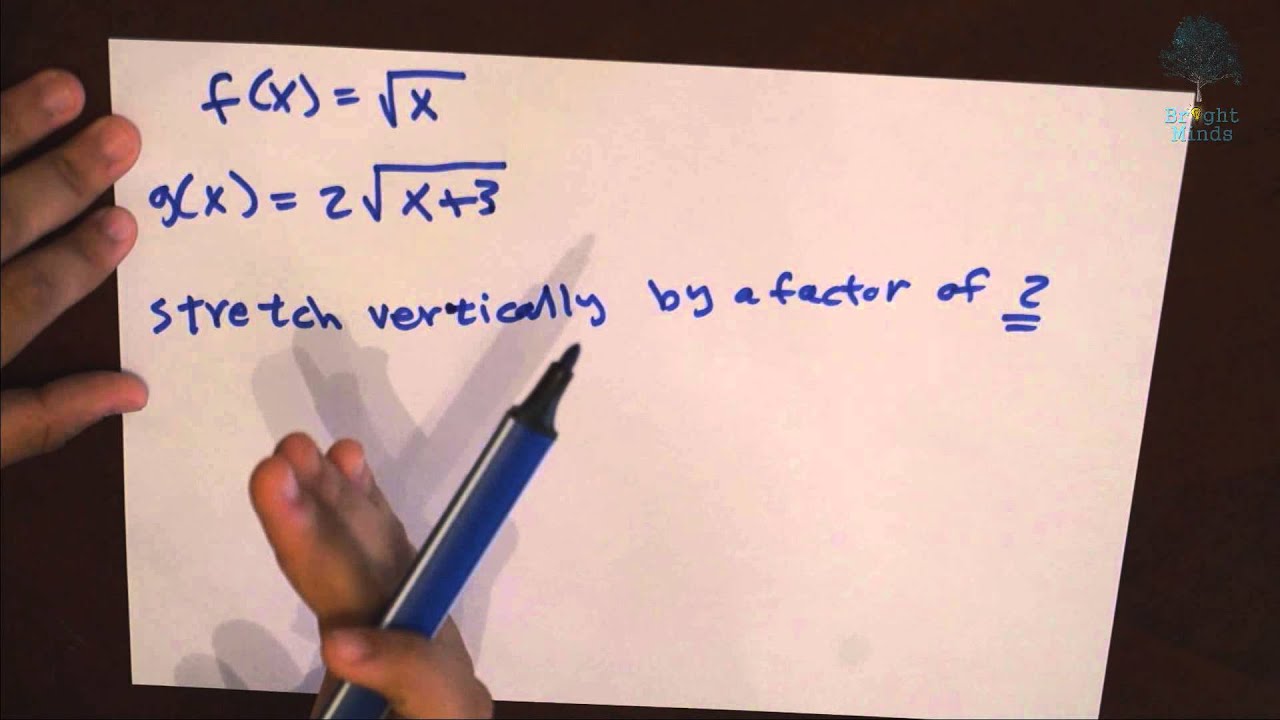 f(x) = √x
g(x) = 2√x+3
stretch vertically by a factor of 2
Bright
Minds